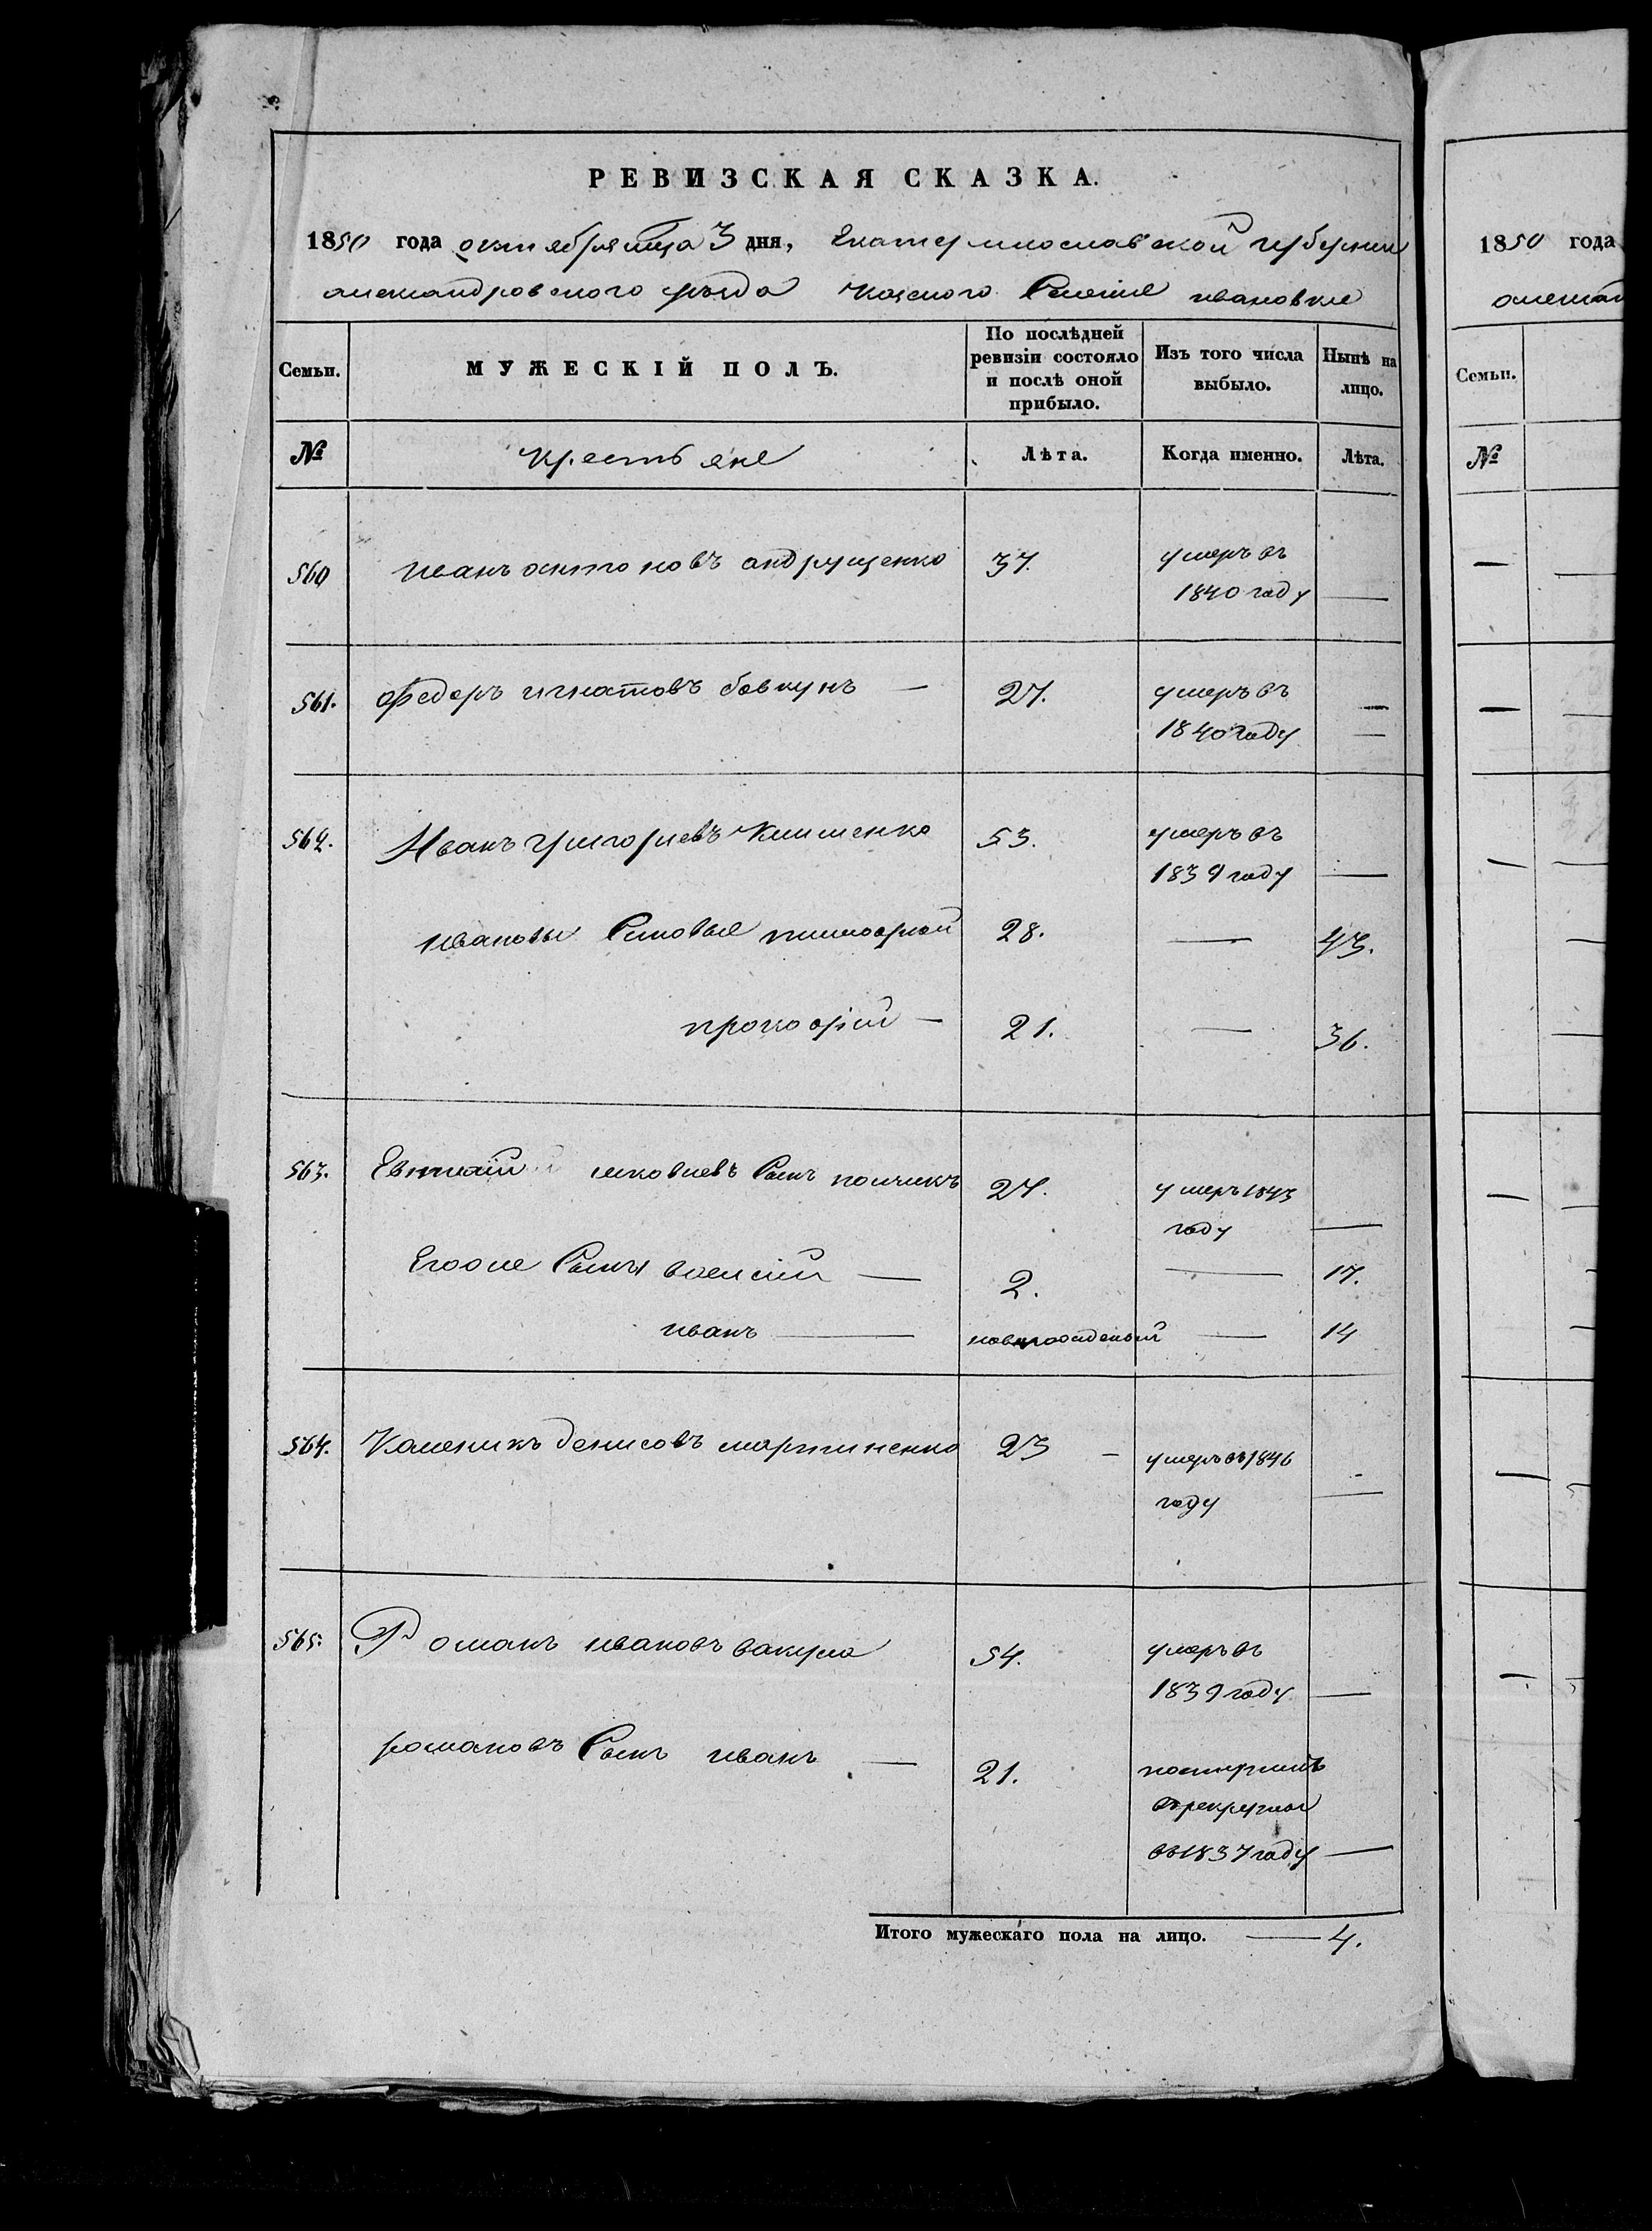 РЕВИЗСКАЯ СКАЗКА.
1850 года октября мца 3 дня, Екатеринославской губернии
александровского уезда казеного Селения ивановки
Семьи.
МУЖЕСКІЙ ПОЛЪ.
По послѣдней ревизіи состояло и послѣ оной прибыло.
Изъ того числа выбыло.
Нынѣ на лицо.
№
крестьяне
Лѣта.
Когда именно.
Лѣта.
560 иванъ антоновъ андрущенко 37. умеръ въ
1840 году —
561. Федоръ игнатовъ бовкунъ — 27. умеръ въ —
1840 году —
562. Иванъ григориевъ Клименко 53. умеръ въ
1839 году —
ивановы Синовье тимофей 28. — 43.
прокофий — 21. — 36.
563. Евтихий яковлевъ Сынъ 27. умеръ 1843
году —
Егоове Сыны — 2. — 17.
иванъ — новорожденый — 14
564. Каленикъ денисовъ мартиненко 23 — умеръ въ 1846
году —
565. Романъ ивановъ вакула 54. умеръ въ
1839 году —
романовъ Сынъ иванъ — 21. поступилъ
в рекруты
въ 1837 году —
Итого мужескаго пола на лицо. — 4.
1850 года
Семьи.
№